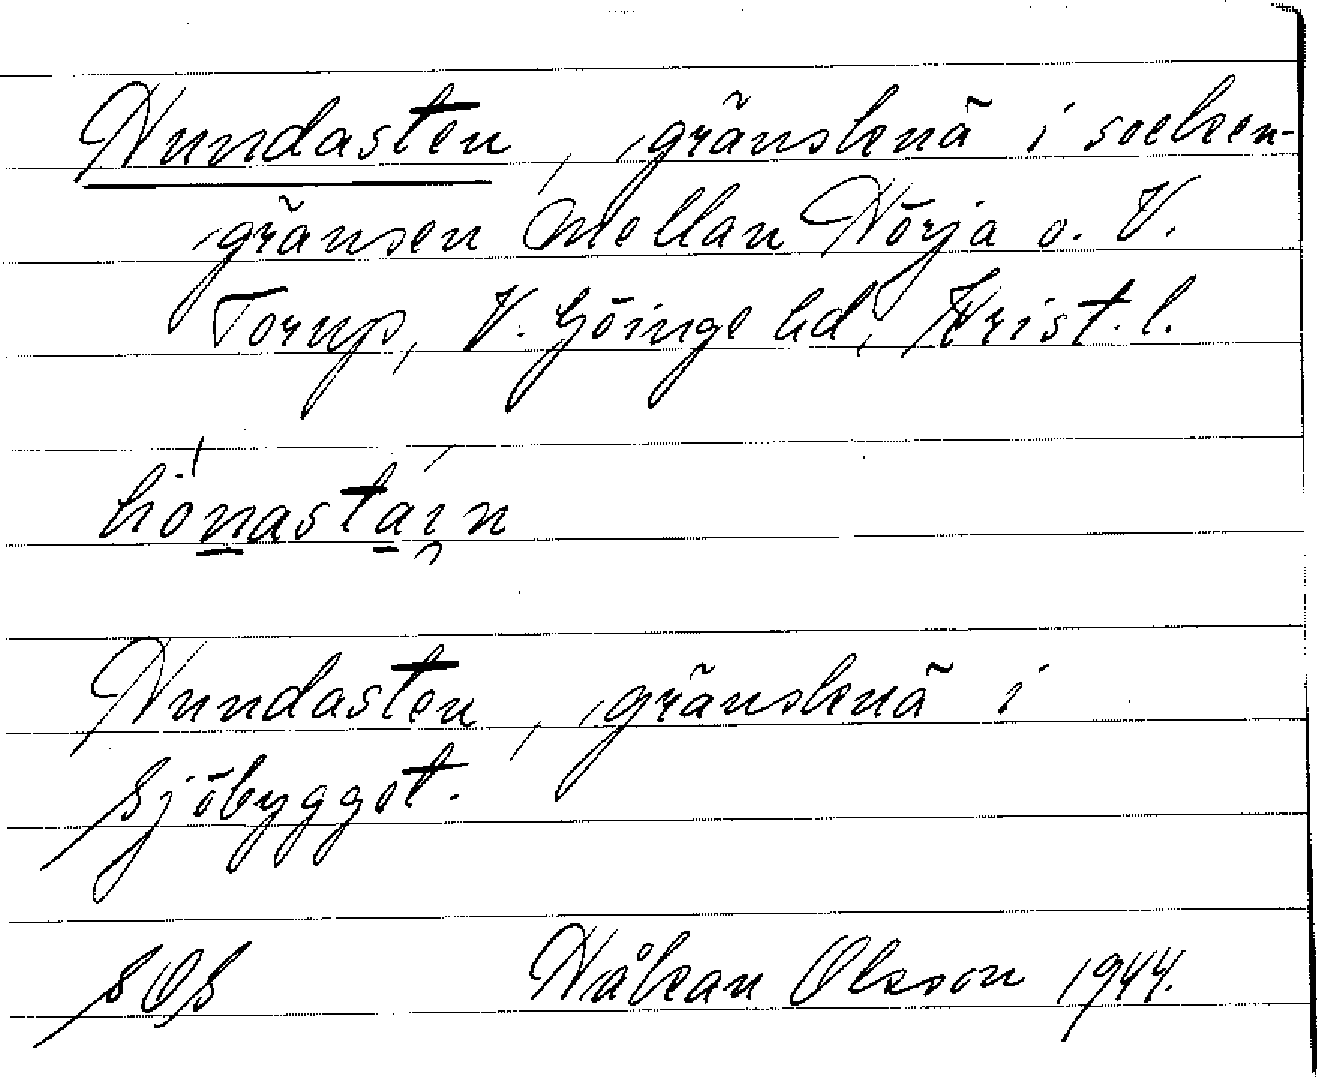 Hundasten, gränsknä i socken-
gränsen mellan Hörja o. V.
Torup, V. Göinge hd, Krist. l.
hönastain
Hundasten, gränsknä i
Sjöbygget.
SOS Håkan Olsson 1944.